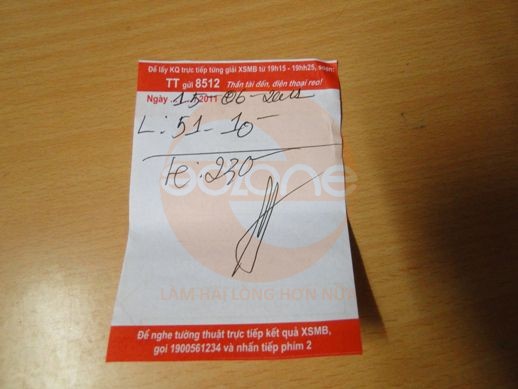 Để lấy KQ trực tiếp từng giải XSMB từ 19h15 - 19hh25, soạn:
TT gửi 8512 Thần tài đến, điện thoại reo!
Ngày 15-06-2011
L: 51-10
tc: 230
GOZONE
LÀM HÀI LÒNG HƠN NỮA
Để nghe tường thuật trực tiếp kết quả XSMB,
gọi 1900561234 và nhấn tiếp phím 2